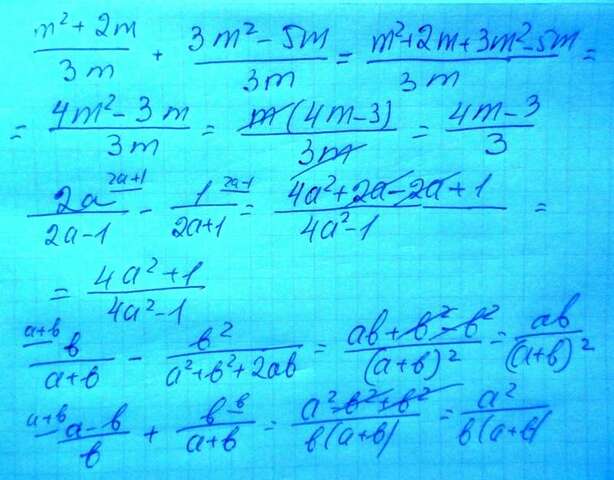 (m²+2m)/(3m) + (3m²-5m)/(3m) = (m²+2m+3m²-5m)/(3m) =
= (4m²-3m)/(3m) = (m(4m-3))/(3m) = (4m-3)/3
(2a ^{2a+1})/(2a-1) - (1 ^{2a-1})/(2a+1) = (4a²+2a-2a+1)/(4a²-1) =
= (4a²+1)/(4a²-1)
(^{a+b} b)/(a+b) - (b²)/(a²+b²+2ab) = (ab+b²-b²)/((a+b)²) = (ab)/((a+b)²)
(^{a+b} a-b)/(b) + (b ^{b})/(a+b) = (a²-b²+b²)/(b(a+b)) = (a²)/(b(a+b)